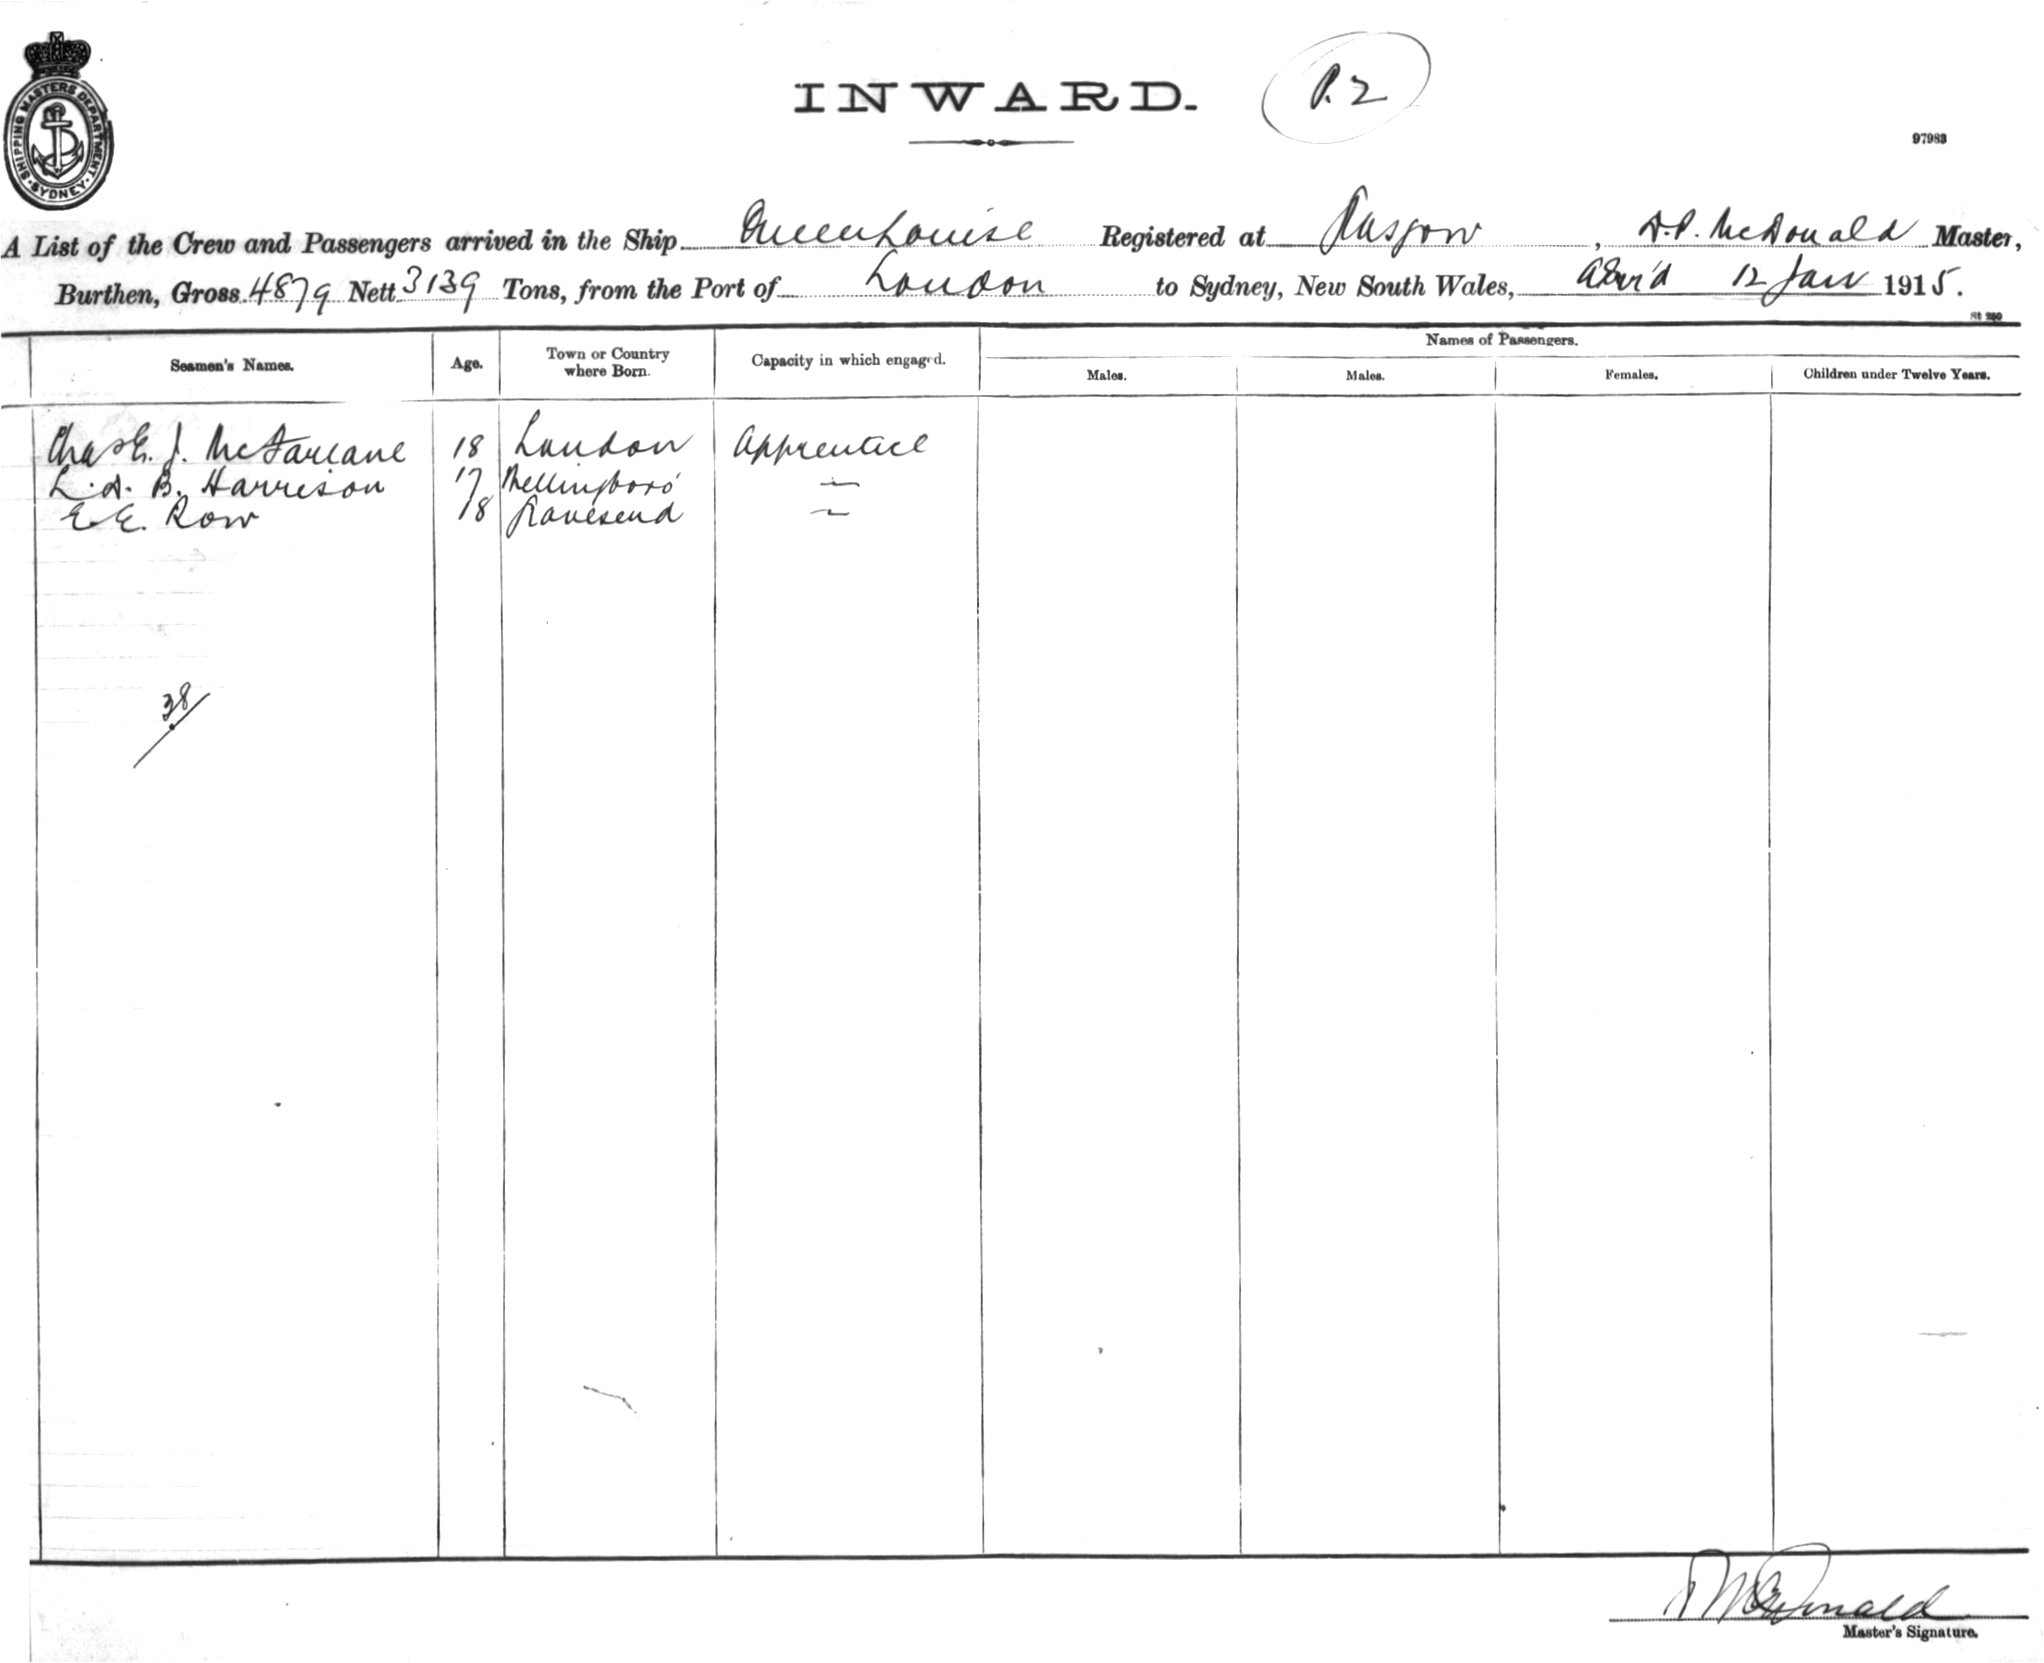 SHIPPING MASTERS DEPARTMENT
SYDNEY
INWARD.
P. 2
97983
A List of the Crew and Passengers arrived in the Ship Queen Louise Registered at Glasgow, D.P. McDonald Master,
Burthen, Gross 4879 Nett 3139 Tons, from the Port of London to Sydney, New South Wales, 12 Jan 1915.
St 280
Names of Passengers.
Seamen's Names. Age. Town or Country where Born. Capacity in which engaged. Males. Males. Females. Children under Twelve Years.
Chas E. J. McFarlane 18 London Apprentice
L. A. B. Harrison 17 Wellingboro' 〃
E. E. Row 18 Gravesend 〃
38
McDonald
Master's Signature.